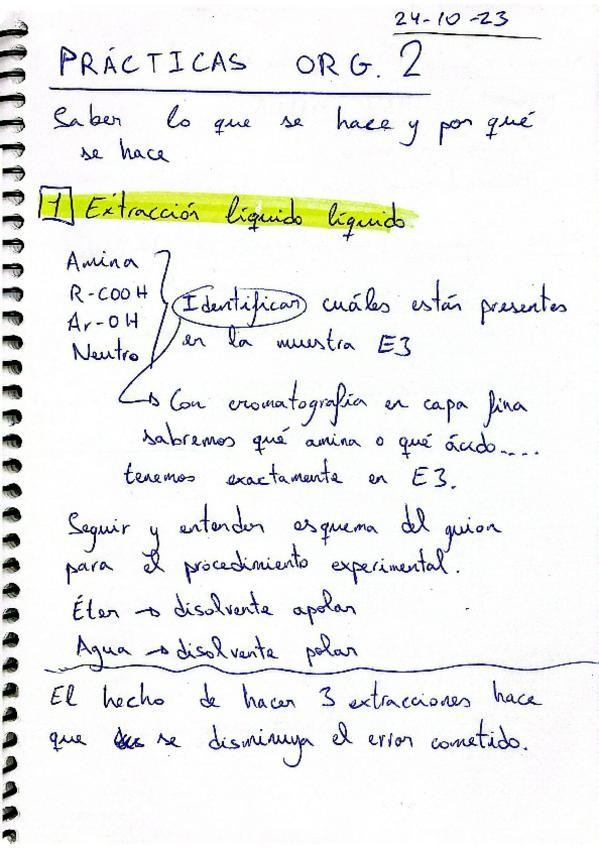 24-10-23
PRÁCTICAS ORG. 2
Saber lo que se hace y por qué
se hace
1 Extracción líquido líquido
Amina
R-COOH
Ar-OH
Neutro
Identificar cuáles están presentes
en la muestra E3
↳ Con cromatografía en capa fina
sabremos qué amina o qué ácido....
tenemos exactamente en E3.
Seguir y entender esquema del guion
para el procedimiento experimental.
Éter → disolvente apolar
Agua → disolvente polar
El hecho de hacer 3 extracciones hace
que se disminuya el error cometido.